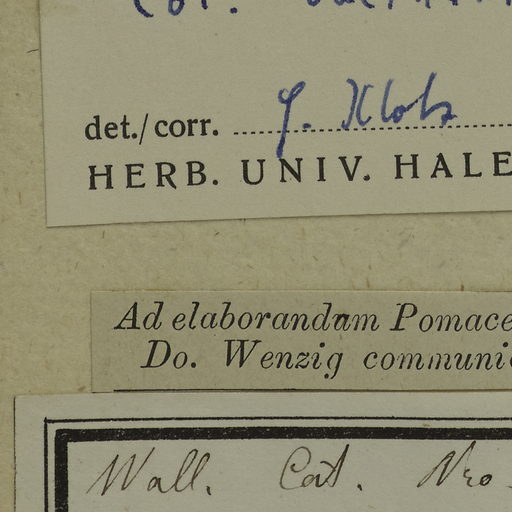 Cot.
det./corr. G. Klotz
HERB. UNIV. HALE
Ad elaborandam Pomace
Do. Wenzig communi
Wall. Cat. Nro.